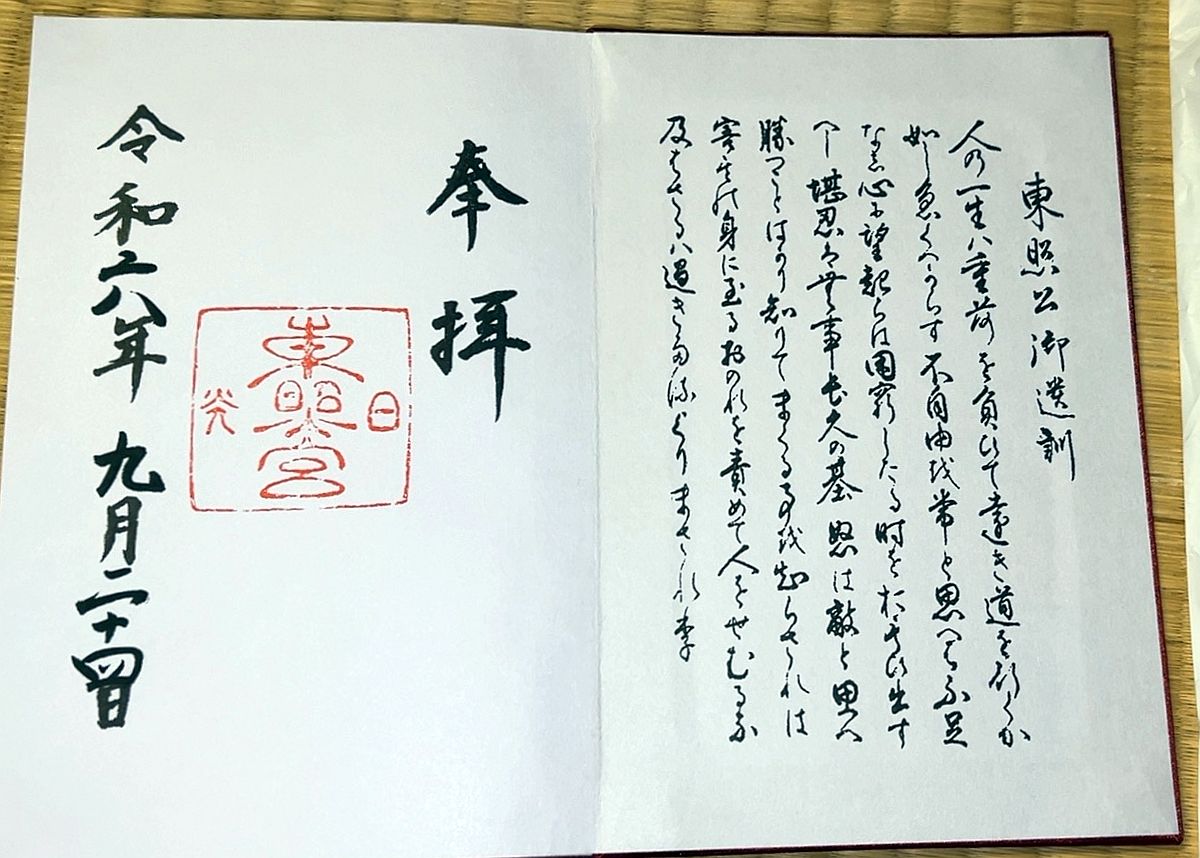 東照公御遺訓
人の一生ハ重荷を負ひて遠き道を行くか
如し急くへからす不自由を常と思へは不足
なし心に望起らは困窮したる時をおもひ出す
へし堪忍は無事長久の基怒は敵と思へ
勝つことはかり知りてまくる事を知らされは
害其の身に至るおのれを責めて人をせむるな
及はさるハ過きたるよりまされり
奉拝
日光
東照宮
令和六年 九月二十四日